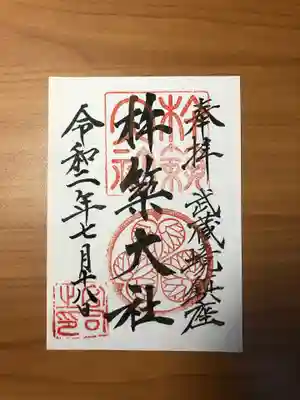 奉拝
武蔵境鎮座
杵築大社
令和二年七月十八日